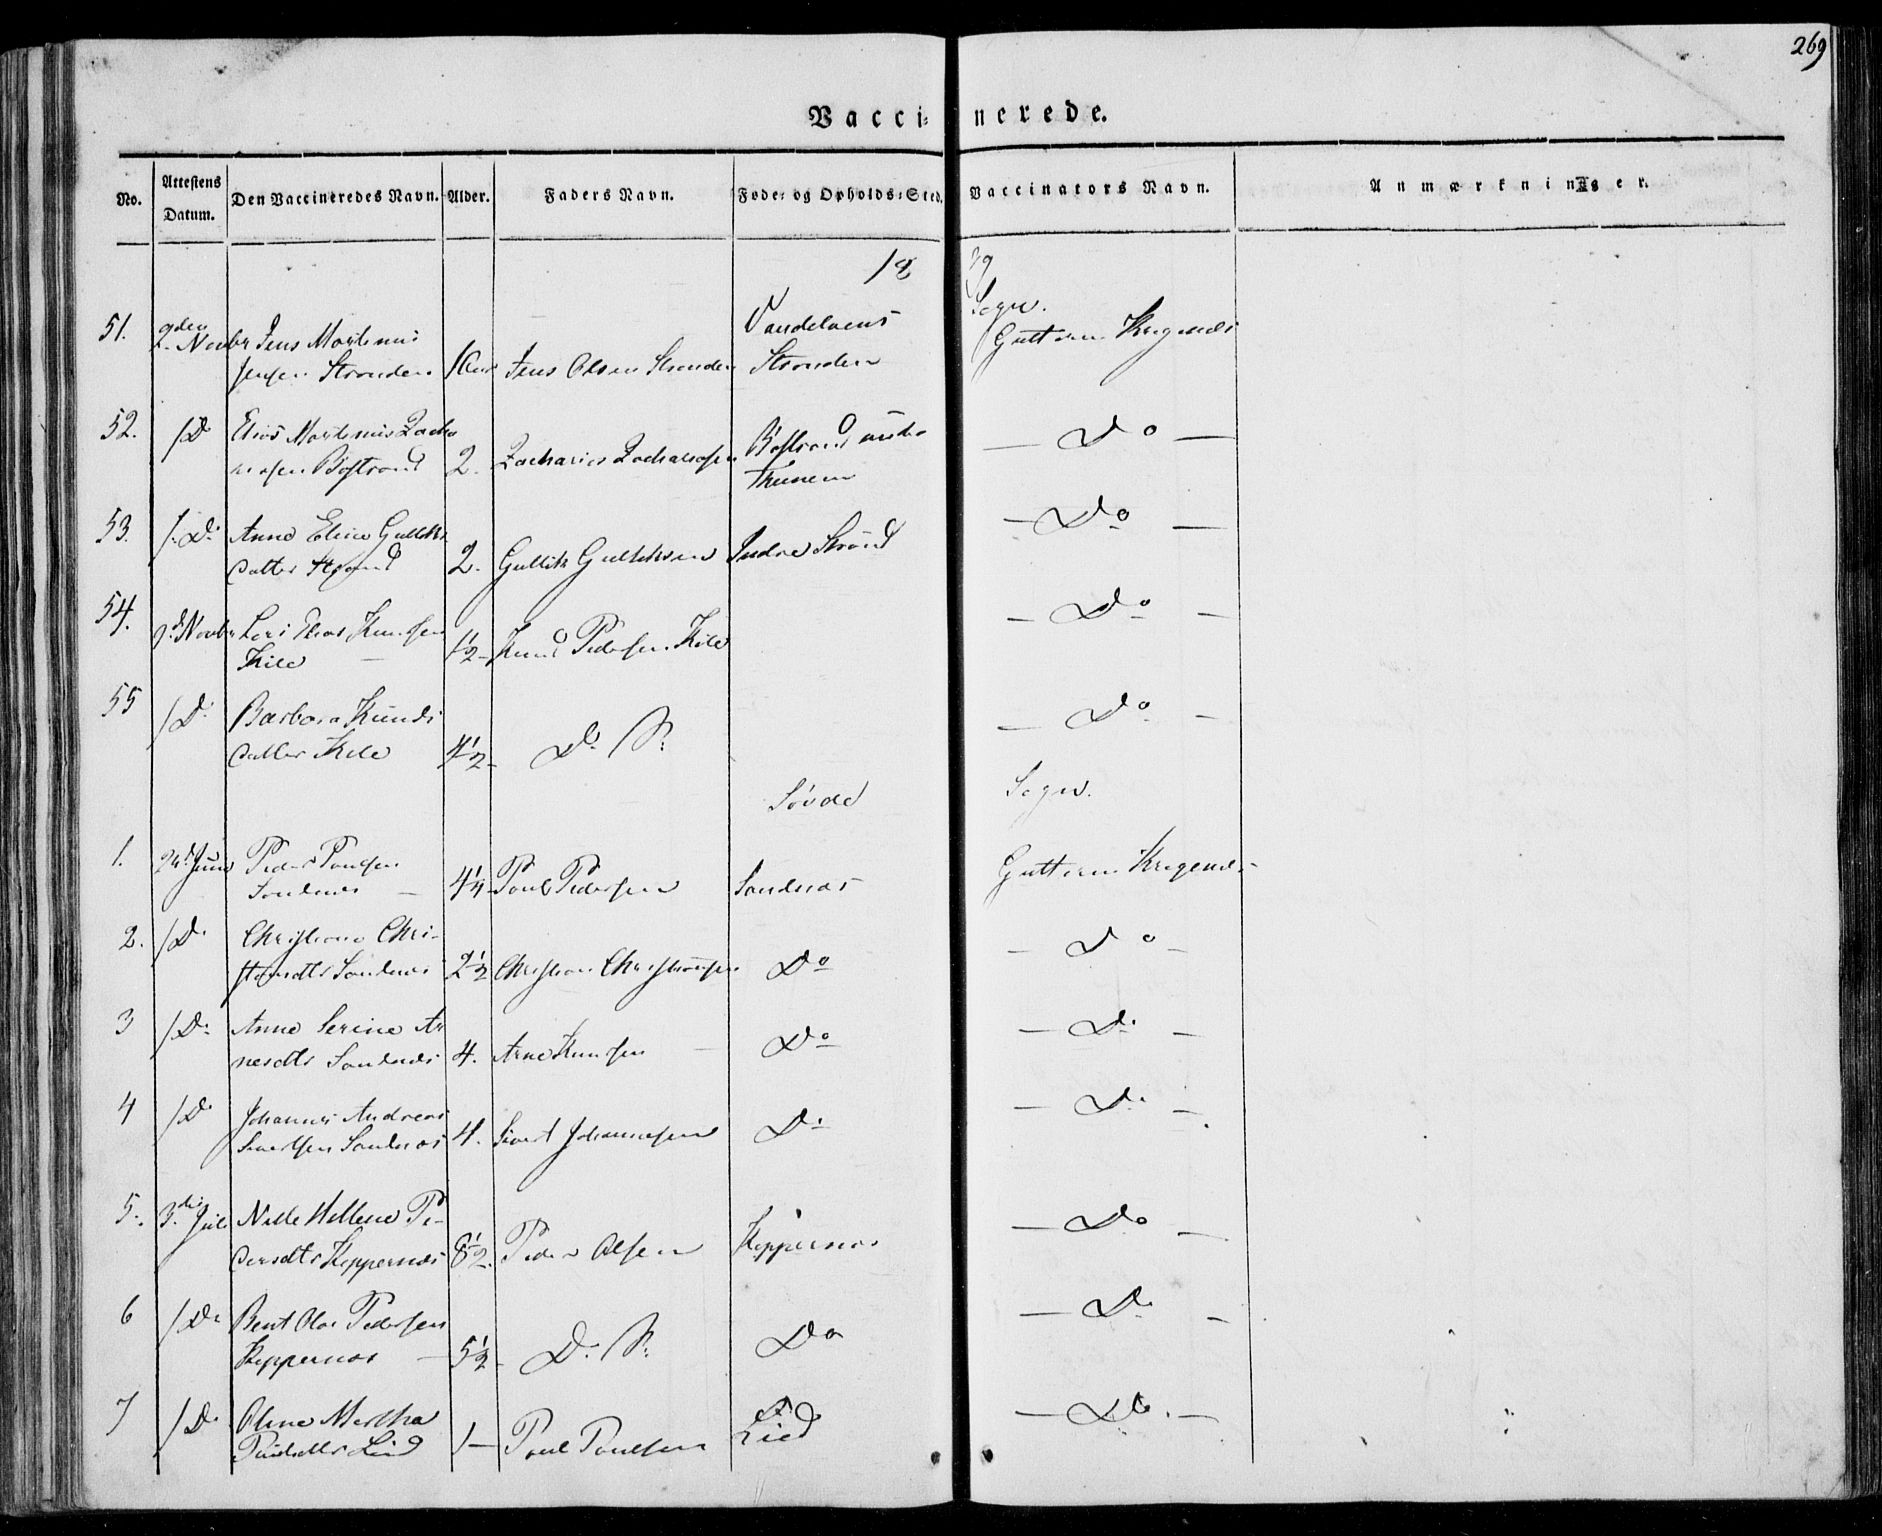 269
Vacci- nerede.
No. Attestens Datum. Den Vaccineredes Navn. Alder. Faders Navn. Føde- og Opholds-Sted. Vaccinators Navn. Anmærkninger.
18 29
Vandelvens Sogn.
51. 2den Novbr Jens Martinus
Jensen Stranden 1 Jens Olsen Stranden Stranden Guttorm Krigsnes
52. /D Elias Martinus Zacha
riasen Bøstrand 2. Zacharias Zachariasen Bøstrand
— Do —
53. /. Do Anne Eline Gulliks
datter Strand 2. Gullik Gulliksen Indre Strand — Do —
54. Novbr Elias Knudsen
Kile — 1½ Knud Pedersen Kile — Do —
55 /Do Barbara Knuds
datter Kile 4½ Do — Do —
Søvde Sogn.
1. 24d Juni Peder Paulsen
Sandnæs — 4½ Paul Pedersen Sandnæs Guttorm Krigsnes
2. /Do Christiane Chri-
stiansdtr Sandnæs 2½ Christian Christiansen Do — Do —
3 /Do Anne Serine Ar
nesdtr Sandnæs 4. Arne Knudsen — Do — Do —
4 /Do Johannes Andreas
Sivertsen Sandnæs 4. Sivert Johannesen Do — Do —
5. 3die Juli Nille Hellene Pe-
dersdtr Keppernæs 8½. Peder Olsen Keppernæs — Do —
6 /Do Bent Olai Pedersen
Keppernæs — 5½ Do Do — Do —
7 /Do Oline Martha
Paulsdtr Lied 1 — Paul Paulsen Lied — Do. —